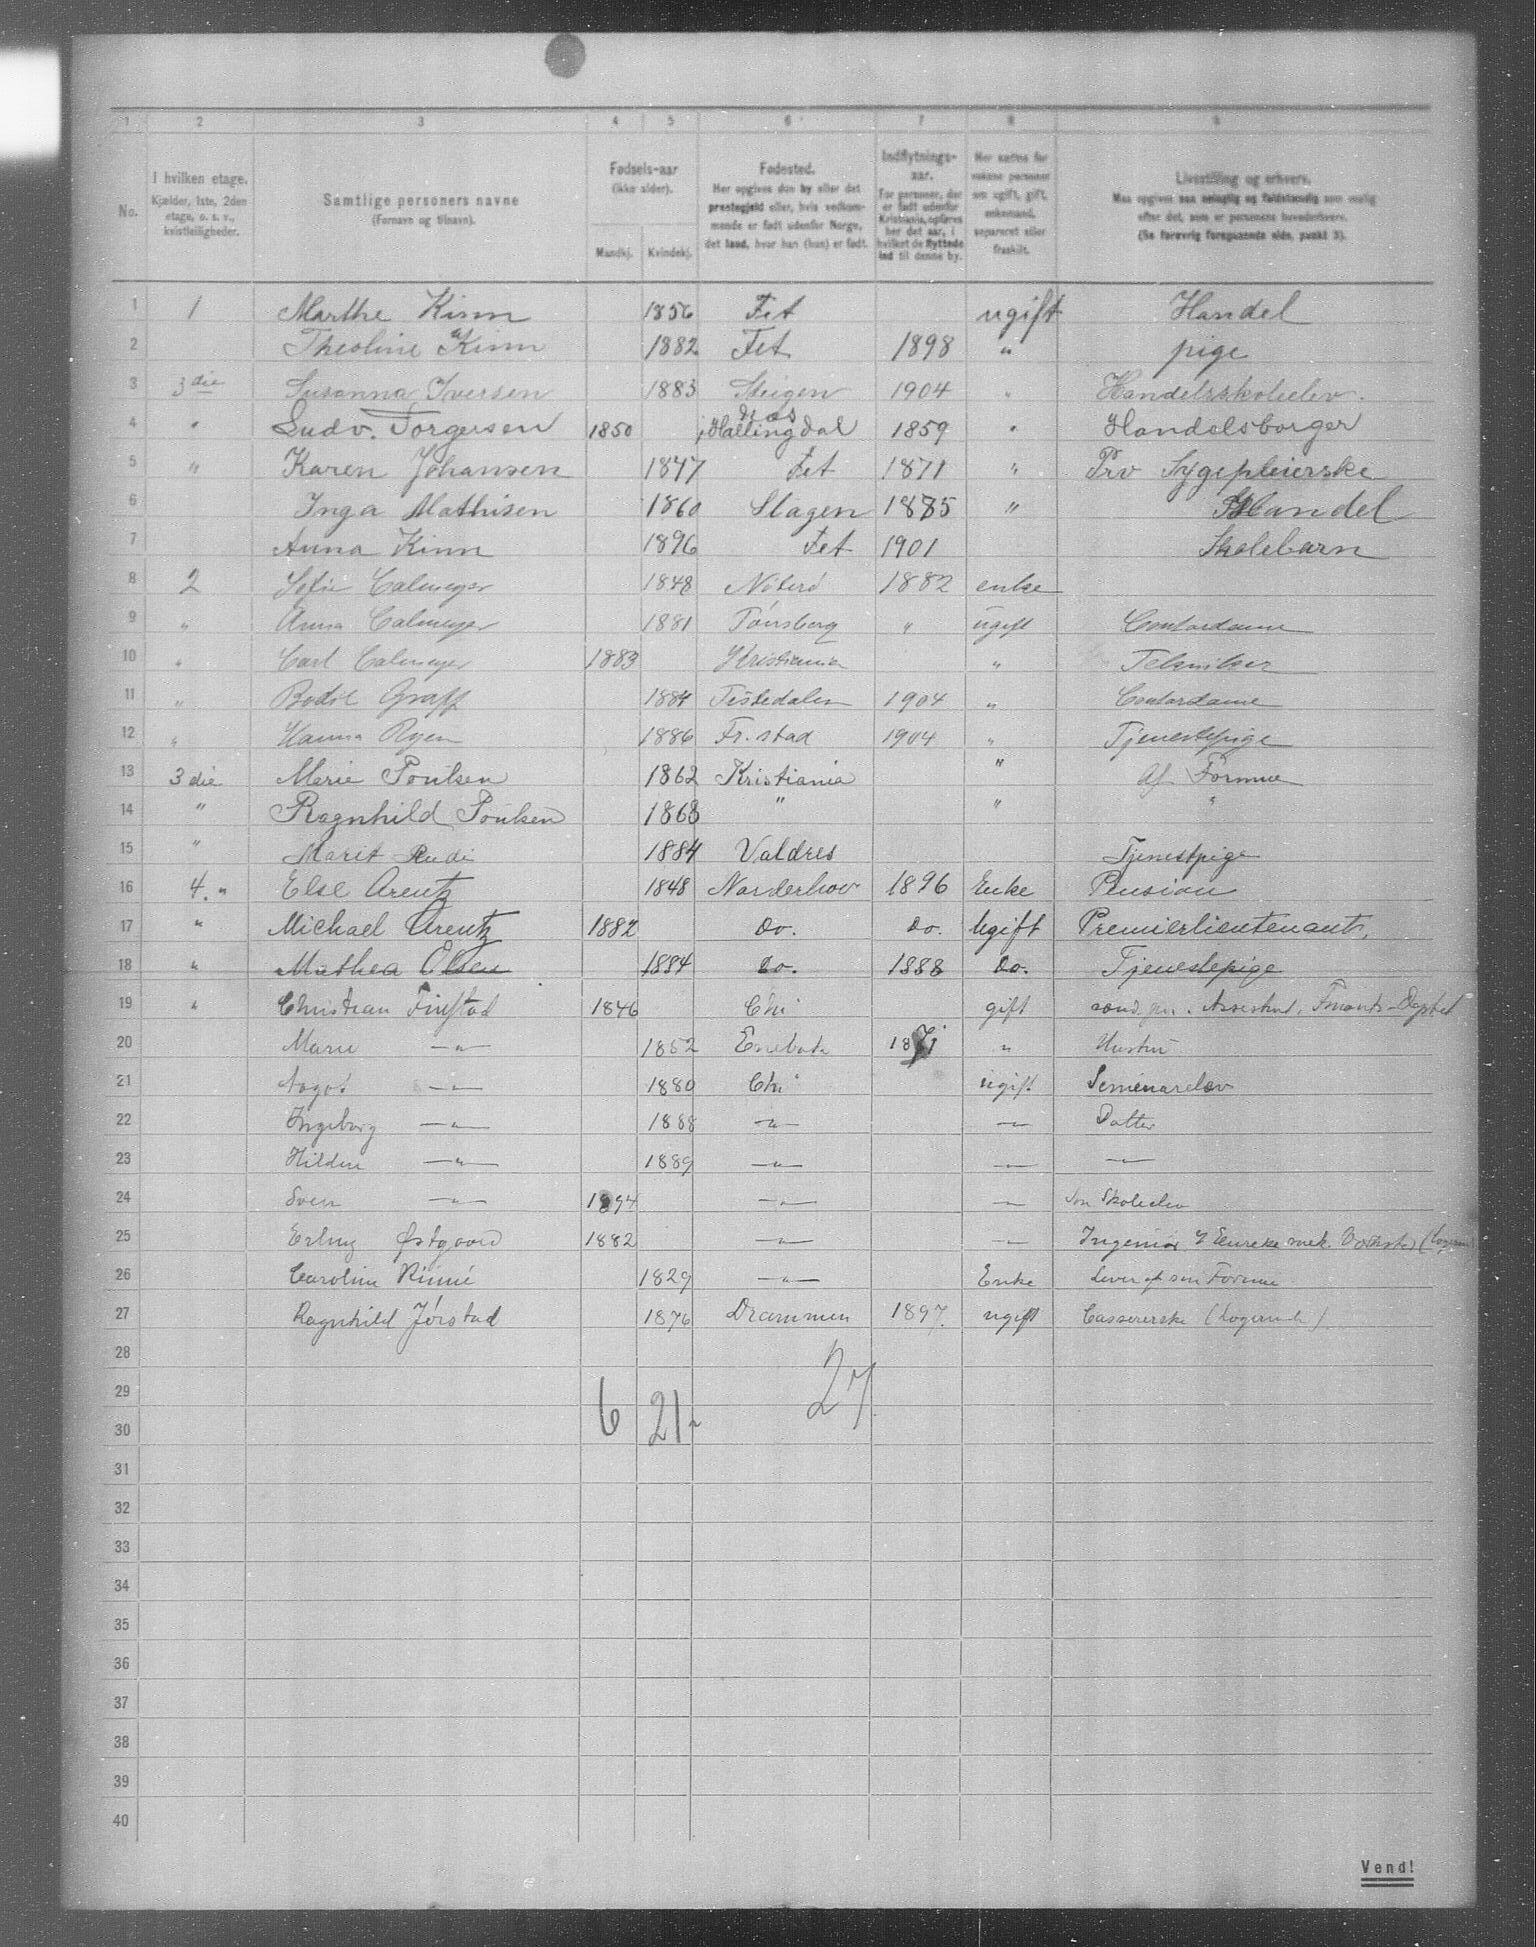 1 2 3 4 5 6 7 8 9
No. I hvilken etage. Kjælder, 1ste, 2den etage, o. s. v., kvistleiligheder. Samtlige personers navne (Fornavn og tilnavn). Fødsels-aar (ikke alder). Mandkj. Kvindekj. Fødested. Her opgives den by eller det prestegjeld eller, hvis vedkommende er født udenfor Norge, det land, hvor han (hun) er født. Indflytnings-aar. For personer, der er født udenfor Kristiania, opføres her det aar, i hvilket de flyttede ind til denne by. Her sættes for voksne personer om ugift, gift, enkemand, separeret eller fraskilt. Livsstilling og erhverv. Maa opgives saa nøiagtig og fuldstændig som mulig efter det, som er personens hovederhverv. (Se forøvrig foregaaende side, punkt 3).
1 1 Marthe Kinn 1856 Fet ugift Handel
2 Theoline Kinn 1882 Fet 1898 " pige
3 3die Susanna Iversen 1883 Steigen 1904 " Handelsskoleelev.
4 " Ludv. Torgersen 1850 Næs i Hallingdal 1859 " Handelsborger
5 " Karen Johansen 1847 Fet 1871 " Prv Sygepleierske
6 Inga Mathisen 1860 Slagen 1885 " Handel
7 Anna Kinn 1896 Fet 1901 Skolebarn
8 2 Sofie Calmeyer 1848 Nøterø 1882 enke
9 " Anna Calmeyer 1881 Tønsberg " ugift Contordame
10 " Carl Calmeyer 1883 Kristiania " Tekniker
11 " Bodil Graff 1884 Tistedalen 1904 " Contordame
12 " Hanna Ryen 1886 Fr.stad 1904 " Tjenestepige
13 3 die Marie Poulsen 1862 Kristiania " Af Formue
14 " Ragnhild Poulsen 1868 " " "
15 " Marit Rudi 1884 Valdres Tjenestpige
16 4. " Else Arentz 1848 Norderhov 1896 Enke Pension
17 " Michael Arentz 1882 Do. Do. Ugift Premierlieutenant,
18 " Mathea Olsen 1884 Do. 1888 Do. Tjenestepige
19 " Christian Finstad 1846 Chi gift
20 Marie —"— 1852 Enebak 1871 " Hustru
21 Aagot —"— 1880 Chi ugift Seminarelev
22 Ingeborg —"— 1888 —"— —"— Datter
23 Hildur —"— 1889 —"— —"— —"—
24 Sven —"— 1894 —"— —"— Søn Skoleelev
25 Erling Østgaard 1882 —"— —"— Ingeniør v Eureka mek. Værksted
26 Caroline Rinné 1829 —"— Enke Lever af sin Formue
27 Ragnhild Jørstad 1876 Drammen 1897. ugift Cassererske (Logerende).
28
29 6 21 27
30
31
32
33
34
35
36
37
38
39
40
Vend!